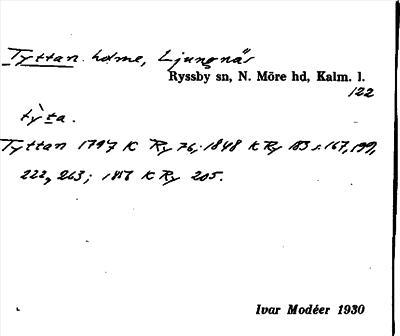 Tyttan. holme, Ljungnäs
Ryssby sn, N. Möre hd, Kalm. l.
122
tỳta.
Tyttan 1797 K Ry 76; 1848 K Ry 183 s. 167, 199,
222, 263; 1817 K Ry 205.
Ivar Modéer 1930